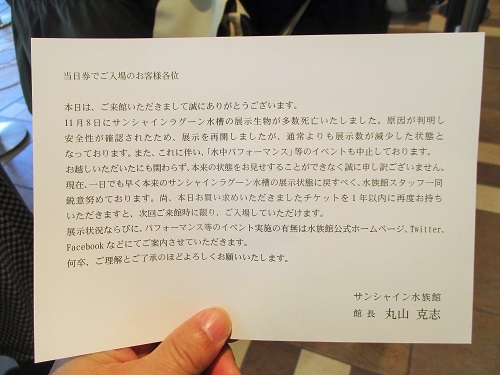 当日券でご入場のお客様各位
本日は、ご来館いただきまして誠にありがとうございます。
11月8日にサンシャインラグーン水槽の展示生物が多数死亡いたしました。原因が判明し
安全性が確認されたため、展示を再開しましたが、通常よりも展示数が減少した状態と
なっております。また、これに伴い、「水中パフォーマンス」等のイベントも中止しております。
お越しいただいたにも関わらず、本来の状態をお見せすることができなく誠に申し訳ございません。
現在、一日でも早く本来のサンシャインラグーン水槽の展示状態に戻すべく、水族館スタッフ一同
鋭意努めております。尚、本日お買い求めいただきましたチケットを1年以内に再度お持ち
いただきますと、次回ご来館時に限り、ご入場していただけます。
展示状況ならびに、パフォーマンス等のイベント実施の有無は水族館公式ホームページ、Twitter、
Facebookなどにてご案内させていただきます。
何卒、ご理解とご了承のほどよろしくお願いいたします。
サンシャイン水族館
館長 丸山 克志